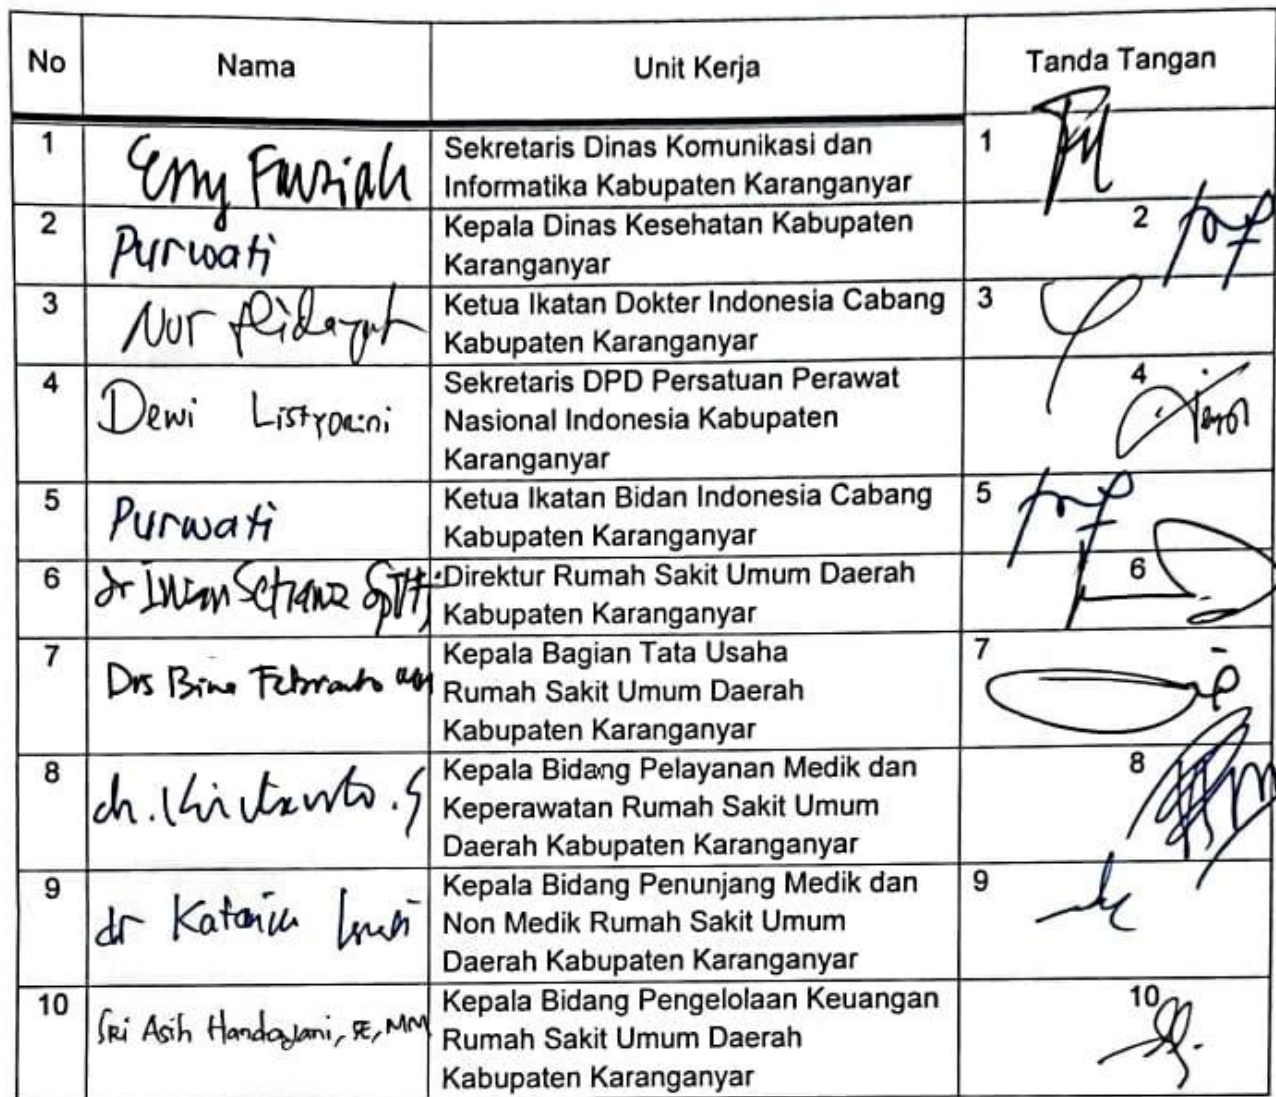 No Nama Unit Kerja Tanda Tangan
1 Erny Fauziah Sekretaris Dinas Komunikasi dan 1
Informatika Kabupaten Karanganyar
2 Purwati Kepala Dinas Kesehatan Kabupaten 2
Karanganyar
3 Nur Hidayat Ketua Ikatan Dokter Indonesia Cabang 3
Kabupaten Karanganyar
4 Dewi Listyorini Sekretaris DPD Persatuan Perawat 4
Nasional Indonesia Kabupaten
Karanganyar
5 Purwati Ketua Ikatan Bidan Indonesia Cabang 5
Kabupaten Karanganyar
6 dr Iwan Setiawan Direktur Rumah Sakit Umum Daerah 6
Kabupaten Karanganyar
7 Drs Bina Febrianto Kepala Bagian Tata Usaha 7
Rumah Sakit Umum Daerah
Kabupaten Karanganyar
8 dr. Kepala Bidang Pelayanan Medik dan 8
Keperawatan Rumah Sakit Umum
Daerah Kabupaten Karanganyar
9 dr Kepala Bidang Penunjang Medik dan 9
Non Medik Rumah Sakit Umum
Daerah Kabupaten Karanganyar
10 Sri Asih Handayani, SE, MM Kepala Bidang Pengelolaan Keuangan 10
Rumah Sakit Umum Daerah
Kabupaten Karanganyar